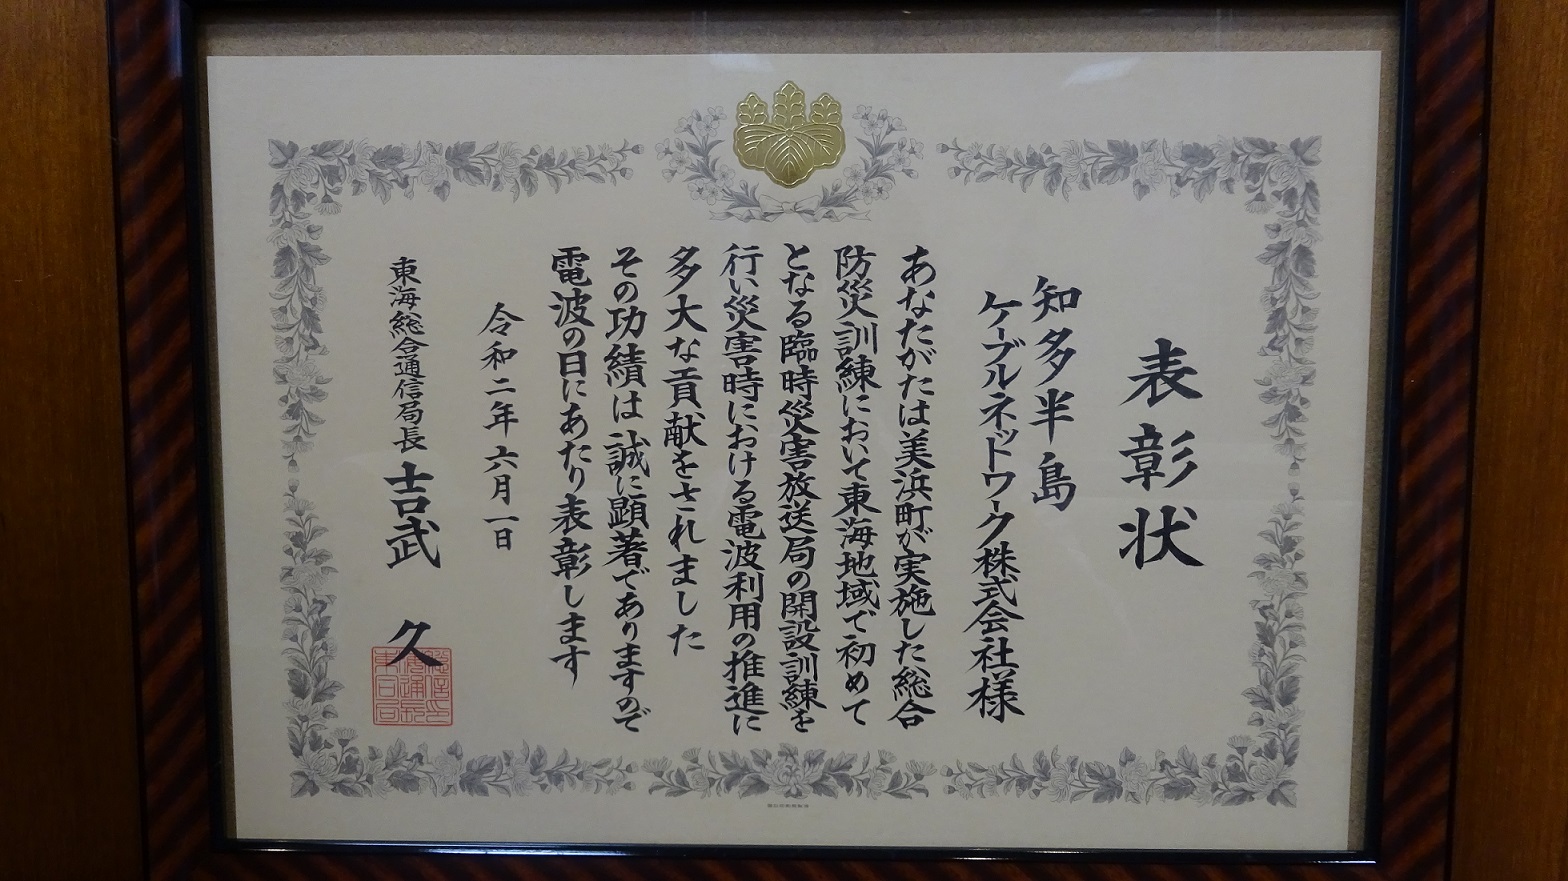 表彰状
知多半島
ケーブルネットワーク株式会社様
あなたがたは美浜町が実施した総合
防災訓練において東海地域で初めて
となる臨時災害放送局の開設訓練を
行い災害時における電波利用の推進に
多大な貢献をされました
その功績は誠に顕著でありますので
電波の日にあたり表彰します
令和二年六月一日
東海総合通信局長 吉武 久